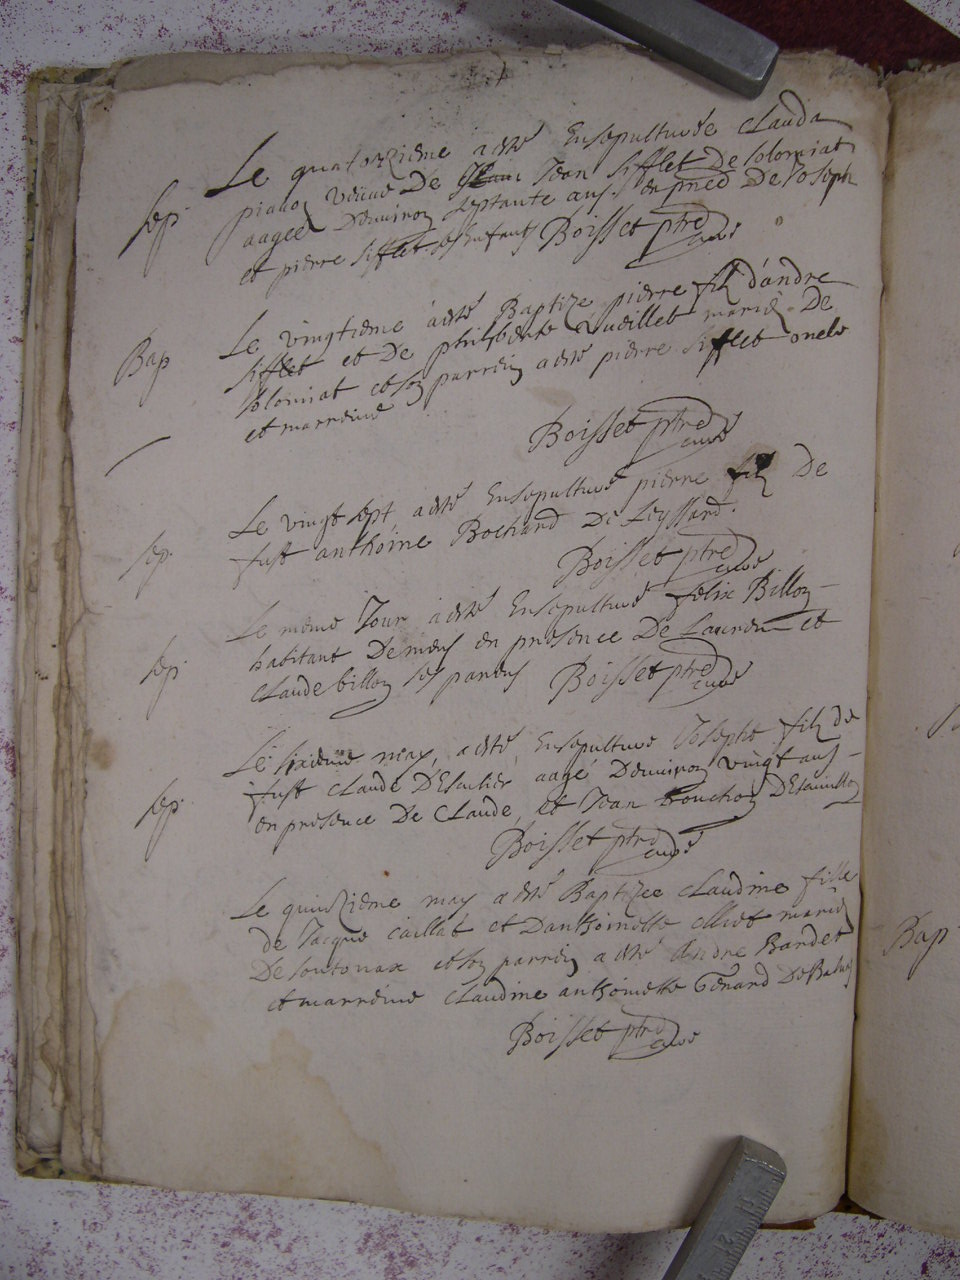 Le quatorzieme a esté Ensepulturée Clauda
sep piano veüve De Jean Sifflet De Solomiat
aagee Denviron septante ans. En pnce De Joseph
et pierre Sifflet ses Enfants Boisset ptre
curé
Bap Le vingtieme a esté Baptize pierre filz d'andre
Sifflet et De philiberte vueillet mariez De
Solomiat et son parrein a esté pierre Sifflet oncle
et marreine
Boisset ptre
curé
Le vingt sept a esté Ensepulturé pierre filz De
sep fust anthoine Bochard De Leyssard.
Boisset ptre
curé
Le meme Jour a esté Ensepulturé felix Billon
sep habitant De mens en presence De Laurent et
Claude billon ses parens Boisset ptre
curé
Le sixieme may, a esté Ensepulturé Josephe filz de
sep fust Claude DEscluse aagé Denviron vingt ans
en presence De Claude, et Jean bouchon
Boisset ptre
curé
Le quinzieme may a esté Baptizee Claudine fille
de Jacque Caillat et Danthoinette Mariez
De Sontonax et son parrein a esté Andre Bardet
Bap
et marreine Claudine anthoinette Genard
Boisset ptre
curé